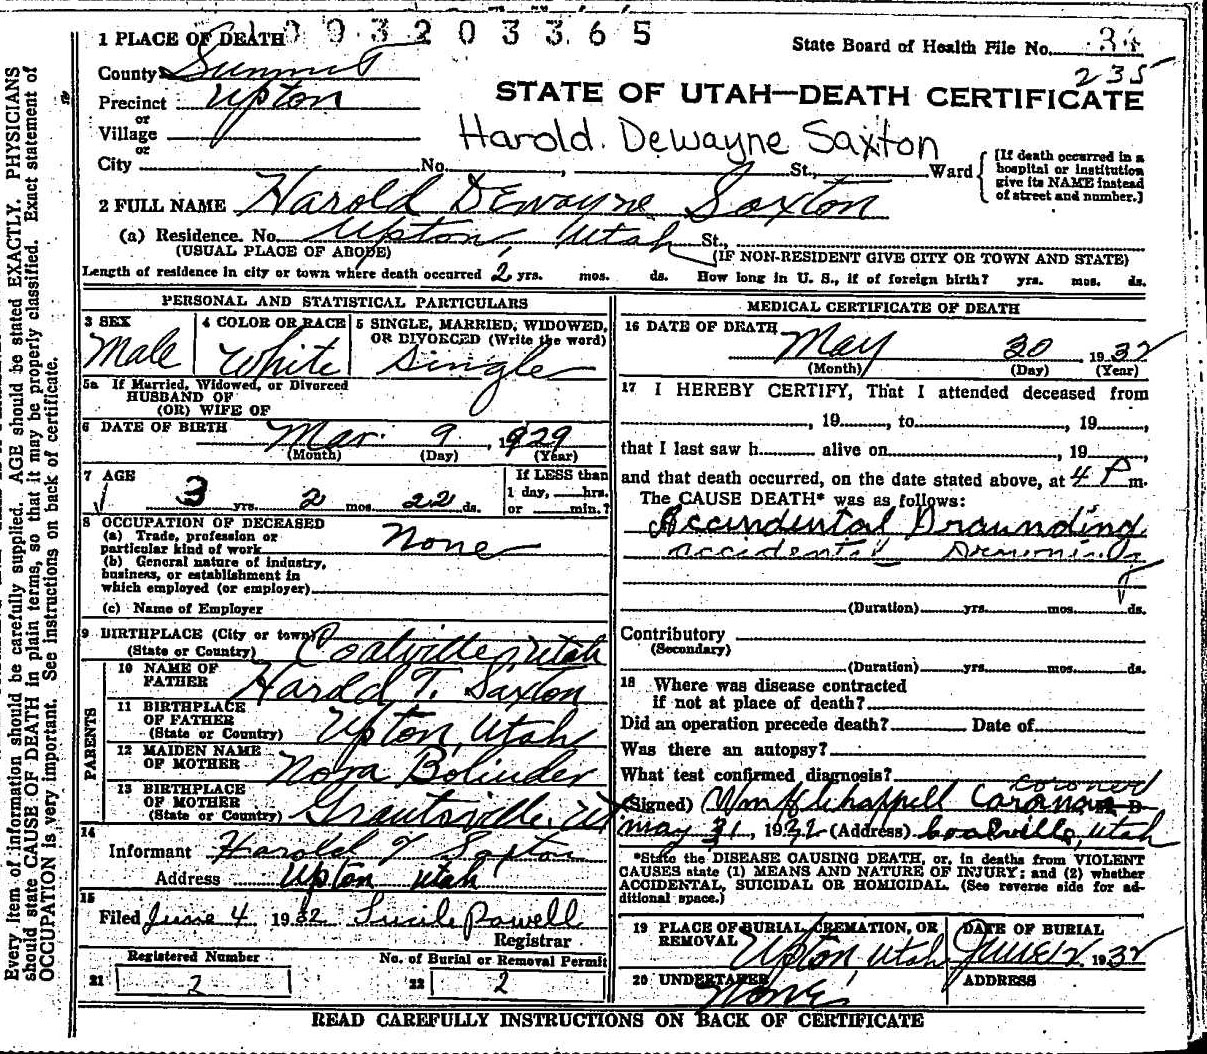 093203365
1 PLACE OF DEATH
State Board of Health File No. 34
235
County Summit
Precinct Upton
or
Village
or
City No. , St., Ward
STATE OF UTAH—DEATH CERTIFICATE
Harold. Dewayne Saxton
[If death occurred in a
hospital or institution
give its NAME instead
of street and number.]
2 FULL NAME Harold Dewayne Saxton
(a) Residence. No. Upton, Utah St.,
(USUAL PLACE OF ABODE) (IF NON-RESIDENT GIVE CITY OR TOWN AND STATE)
Length of residence in city or town where death occurred 2 yrs. mos. ds. How long in U. S., if of foreign birth? yrs. mos. ds.
PERSONAL AND STATISTICAL PARTICULARS
3 SEX
Male
4 COLOR OR RACE
White
5 SINGLE, MARRIED, WIDOWED,
OR DIVORCED (Write the word)
Single
5a If Married, Widowed, or Divorced
HUSBAND OF
(OR) WIFE OF
6 DATE OF BIRTH Mar. 9, 1929
(Month) (Day) (Year)
7 AGE
3 yrs. 2 mos. 22 ds.
If LESS than
1 day, hrs.
or min.?
8 OCCUPATION OF DECEASED
(a) Trade, profession or
particular kind of work None
(b) General nature of industry,
business, or establishment in
which employed (or employer)
(c) Name of Employer
9 BIRTHPLACE (City or town)
(State or Country) Coalville, Utah
PARENTS
10 NAME OF
FATHER Harold T. Saxton
11 BIRTHPLACE
OF FATHER
(State or Country) Upton, Utah
12 MAIDEN NAME
OF MOTHER Nora Bolinder
13 BIRTHPLACE
OF MOTHER
(State or Country) Grantsville, Ut
14
Informant Harold T Saxton
Address Upton Utah
15
Filed June 4 1932 Lucile Powell
Registrar
Registered Number
21 2
No. of Burial or Removal Permit
22 2
MEDICAL CERTIFICATE OF DEATH
16 DATE OF DEATH
May 30, 1932
(Month) (Day) (Year)
17 I HEREBY CERTIFY, That I attended deceased from
, 19 , to , 19 ,
that I last saw h alive on , 19
and that death occurred, on the date stated above, at 4 P m.
The CAUSE DEATH* was as follows:
Accindental Draunding
accidental Drowning
(Duration) yrs. mos. ds.
Contributory
(Secondary)
(Duration) yrs. mos. ds.
18 Where was disease contracted
if not at place of death?
Did an operation precede death? Date of
Was there an autopsy?
What test confirmed diagnosis?
coroner
(Signed) Wm H Chappell Coronor
May 31, 1932 (Address) Coalville, Utah
*State the DISEASE CAUSING DEATH, or, in deaths from VIOLENT
CAUSES state (1) MEANS AND NATURE OF INJURY; and (2) whether
ACCIDENTAL, SUICIDAL OR HOMICIDAL. (See reverse side for ad-
ditional space.)
19 PLACE OF BURIAL, CREMATION, OR
REMOVAL
Upton, Utah
DATE OF BURIAL
June 2 1932
20 UNDERTAKER
None
ADDRESS
READ CAREFULLY INSTRUCTIONS ON BACK OF CERTIFICATE
Every item of information should be carefully supplied. AGE should be stated EXACTLY. PHYSICIANS
should state CAUSE OF DEATH in plain terms, so that it may be properly classified. Exact statement of
OCCUPATION is very important. See instructions on back of certificate.